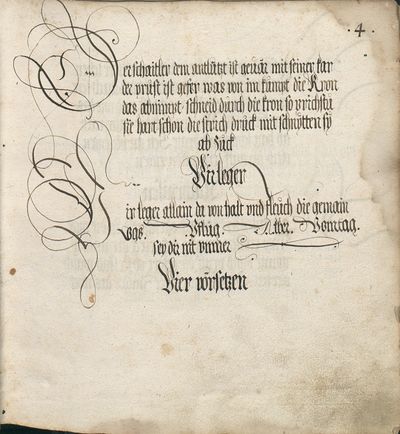 ·4·
Der schaitler dem antlütz ist gevär mit seiner kar
der prust ist gefer was von im kumpt die Kron
das abnimpt schneid durch die kron so prichstu
sie hart schon die strich druck mit schnitten sy
ab zück
Vier leger
Vier leger allain da von halt vnd fleuch die gemain
Ochs. Pflug. Alber. Vomtag.
sey dir nit vnmer
Vier vörsetzen